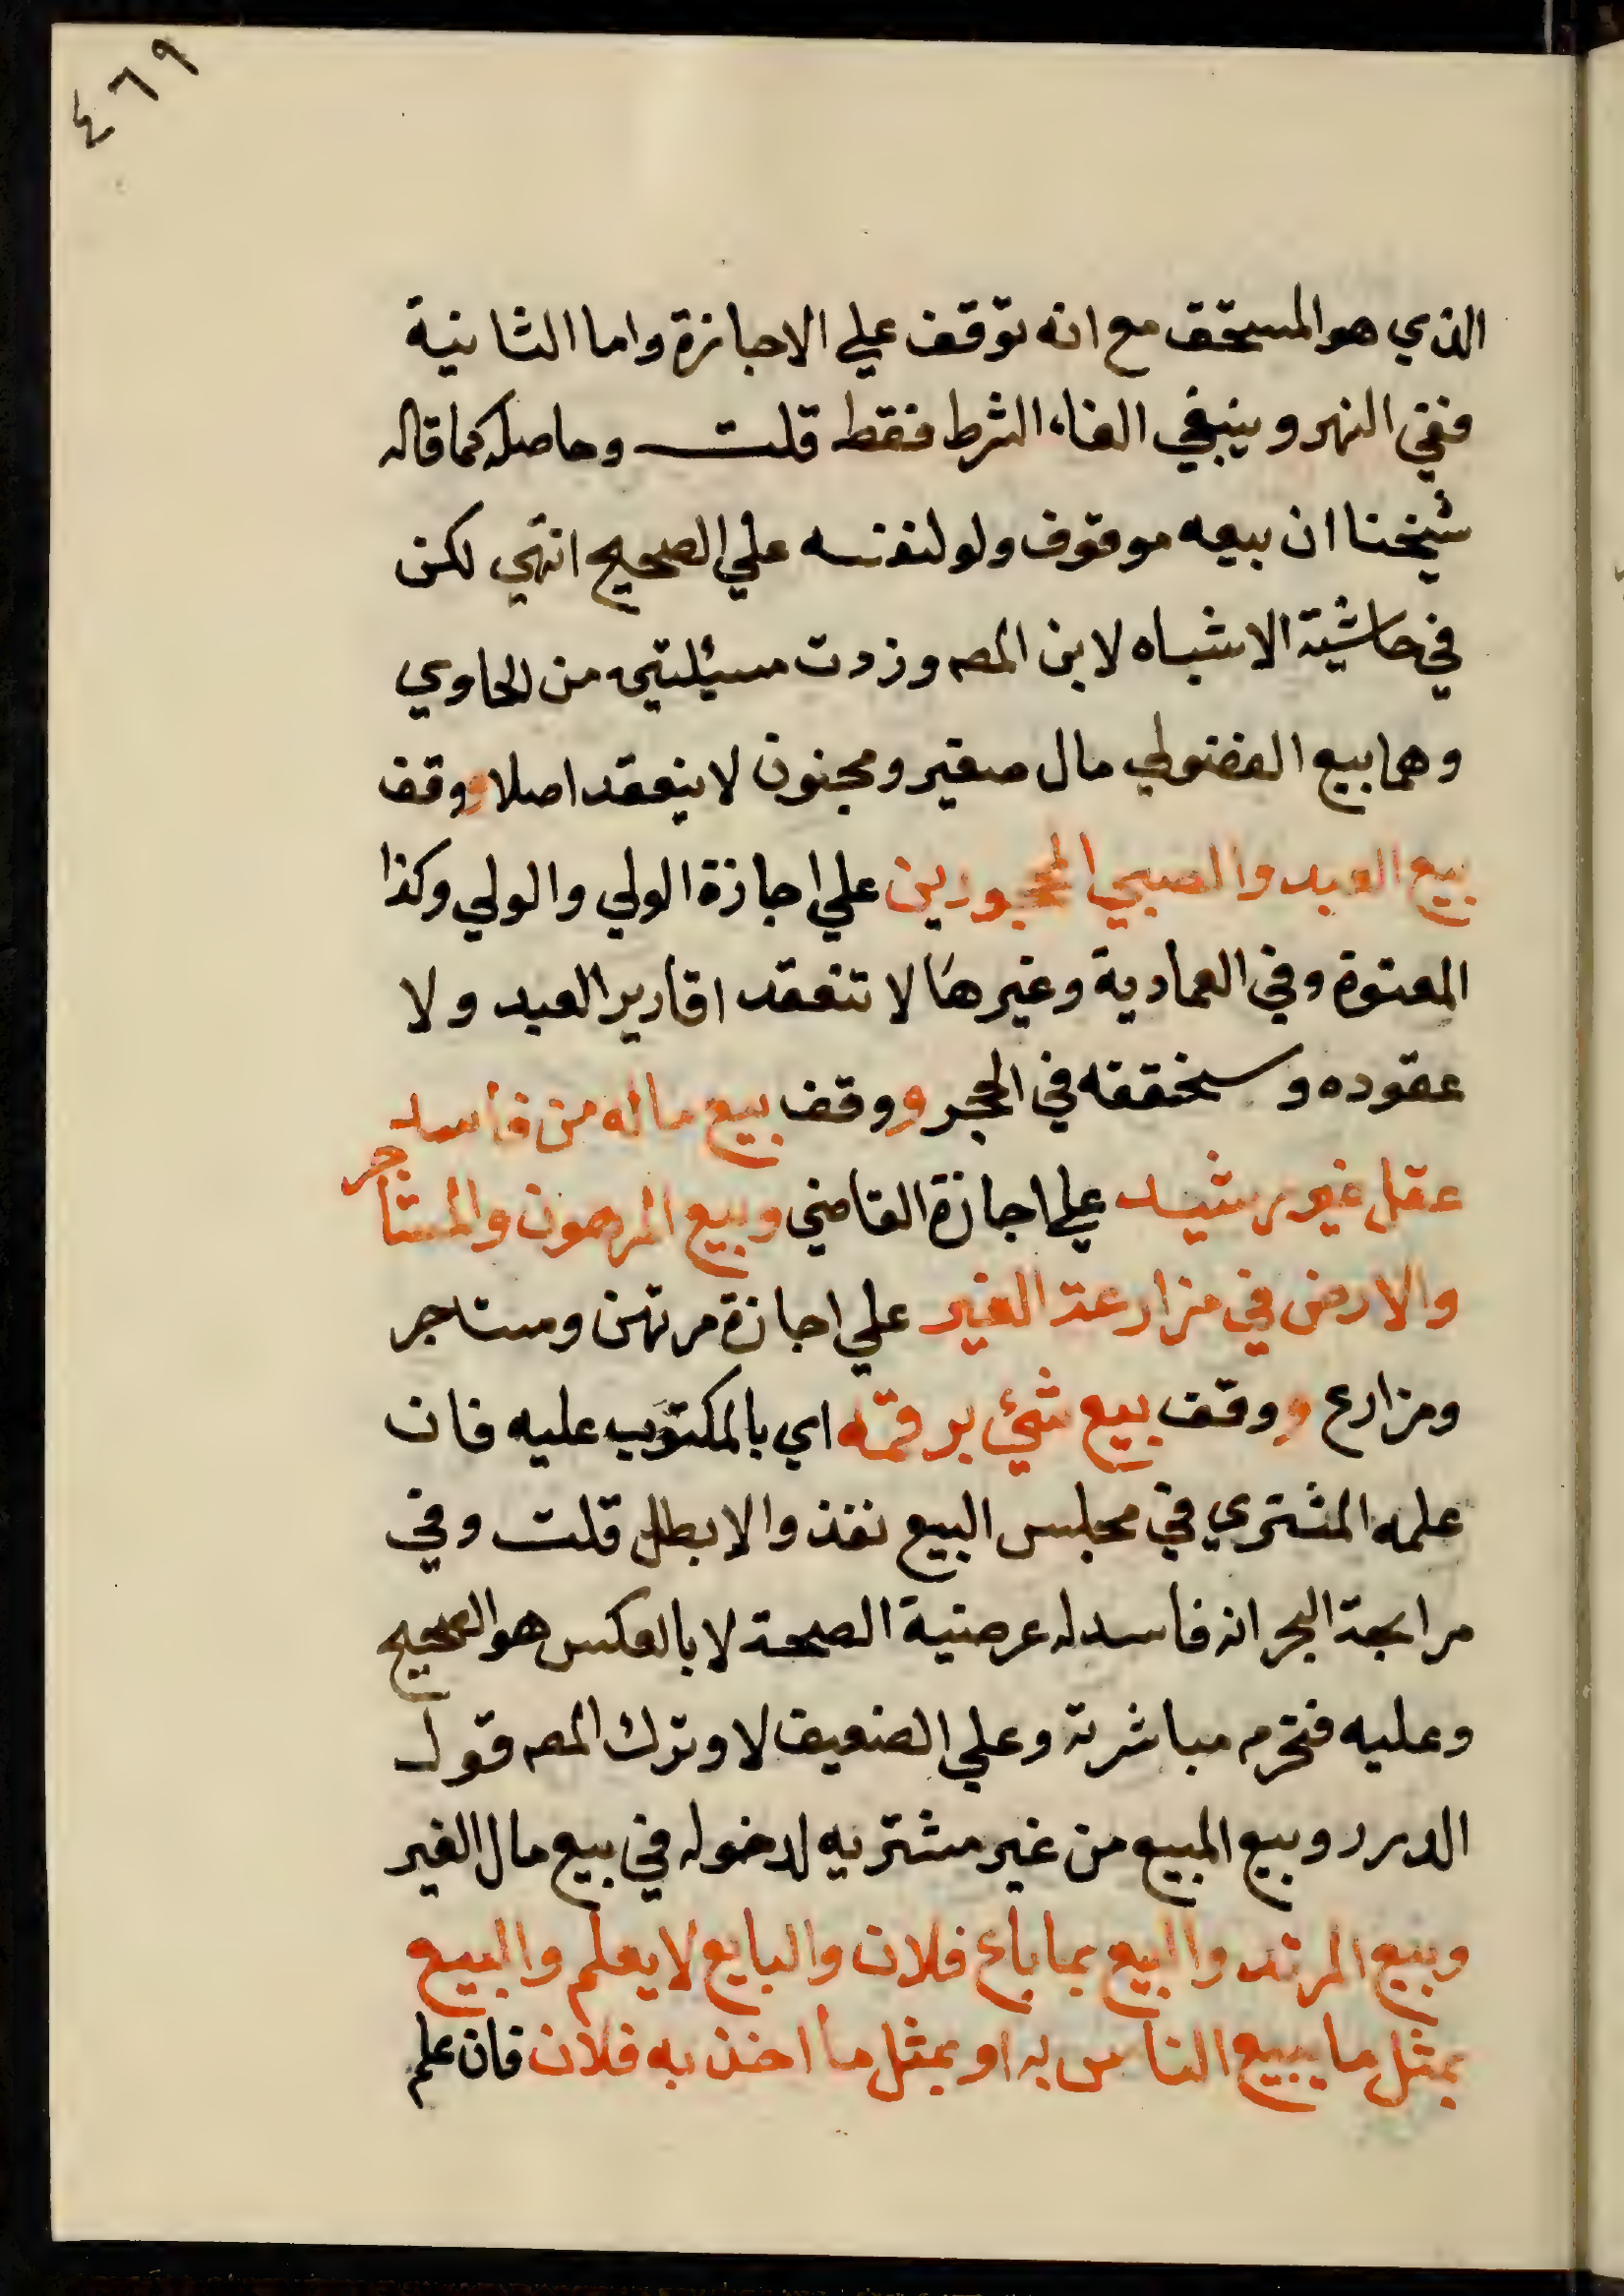 ٤٦٩
الذي هو المستحق مع انه توقف علي الاجازة واما الثانية
ففي النهر وينبغي الغاء الشرط فقط قلت وحاصله كما قاله
شيخنا ان بيعه موقوف ولو لنفسه علي الصحيح انتهي لكن
في حاشية الاشباه لابن المص وزدت مسئلتين من الحاوي
وهما بيع الفضولي مال صغير ومجنون لا ينعقد اصلا ووقف
بيع العبد والصبي المحجورين علي اجازة الولي والولي وكذا
المعتوة وفي العمادية وغيرها لا تنعقد اقارير العبد ولا
عقوده وسنحققه في الحجر ووقف بيع ماله من فاسد
عقل غير رشيد علي اجازة القاضي وبيع المرهون والمستأجر
والارض في مزارعة الغير علي اجازة مرتهن ومستاجر
ومزارع ووقف بيع شئ برقمه اي بالمكتوب عليه فان
علمه المشتري في مجلس البيع نفذ والا بطل قلت وفي
مرابحة البحر انه فاسد له عرضية الصحة لا بالعكس هو الصحيح
وعليه فتحرم مباشرته وعلي الضعيف لا وترك المص قول
الدرر وبيع المبيع من غير مشتريه لدخوله في بيع مال الغير
وبيع المرتد والبيع بما باع فلان والبايع لا يعلم والبيع
بمثل ما يبيع الناس به او بمثل ما اخذ به فلان فان علم